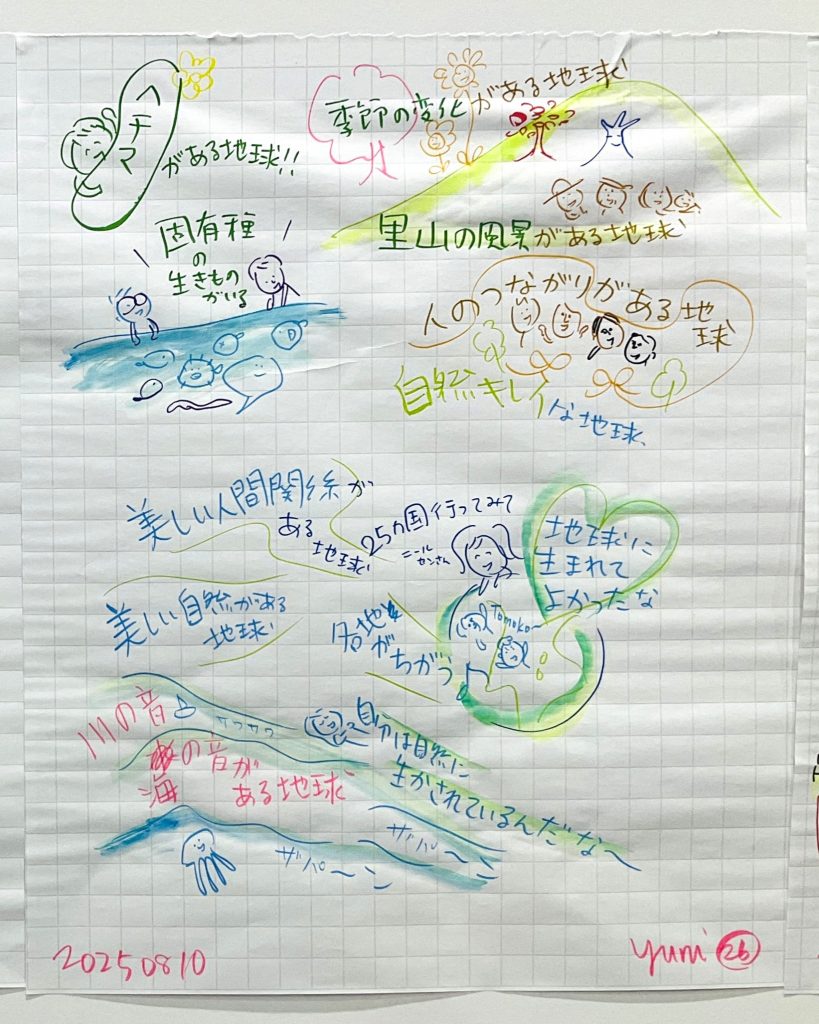 ヘチマ
がある地球!!
季節の変化がある地球
里山の風景がある地球
固有種
の
生きもの
がいる
人のつながりがある地
球
自然キレイな地球
美しい人間関係が
ある
地球
25カ国行ってみて
ニール
センさん
地球に
生まれて
よかったな
美しい自然がある
地球
各地
がちがう
Tomoko〜
川の音
サワサワ
海の音が
ある地球
自分は自然に
生かされているんだな〜
ザパ〜ン
ザパ〜ン
20250810
yuni 26